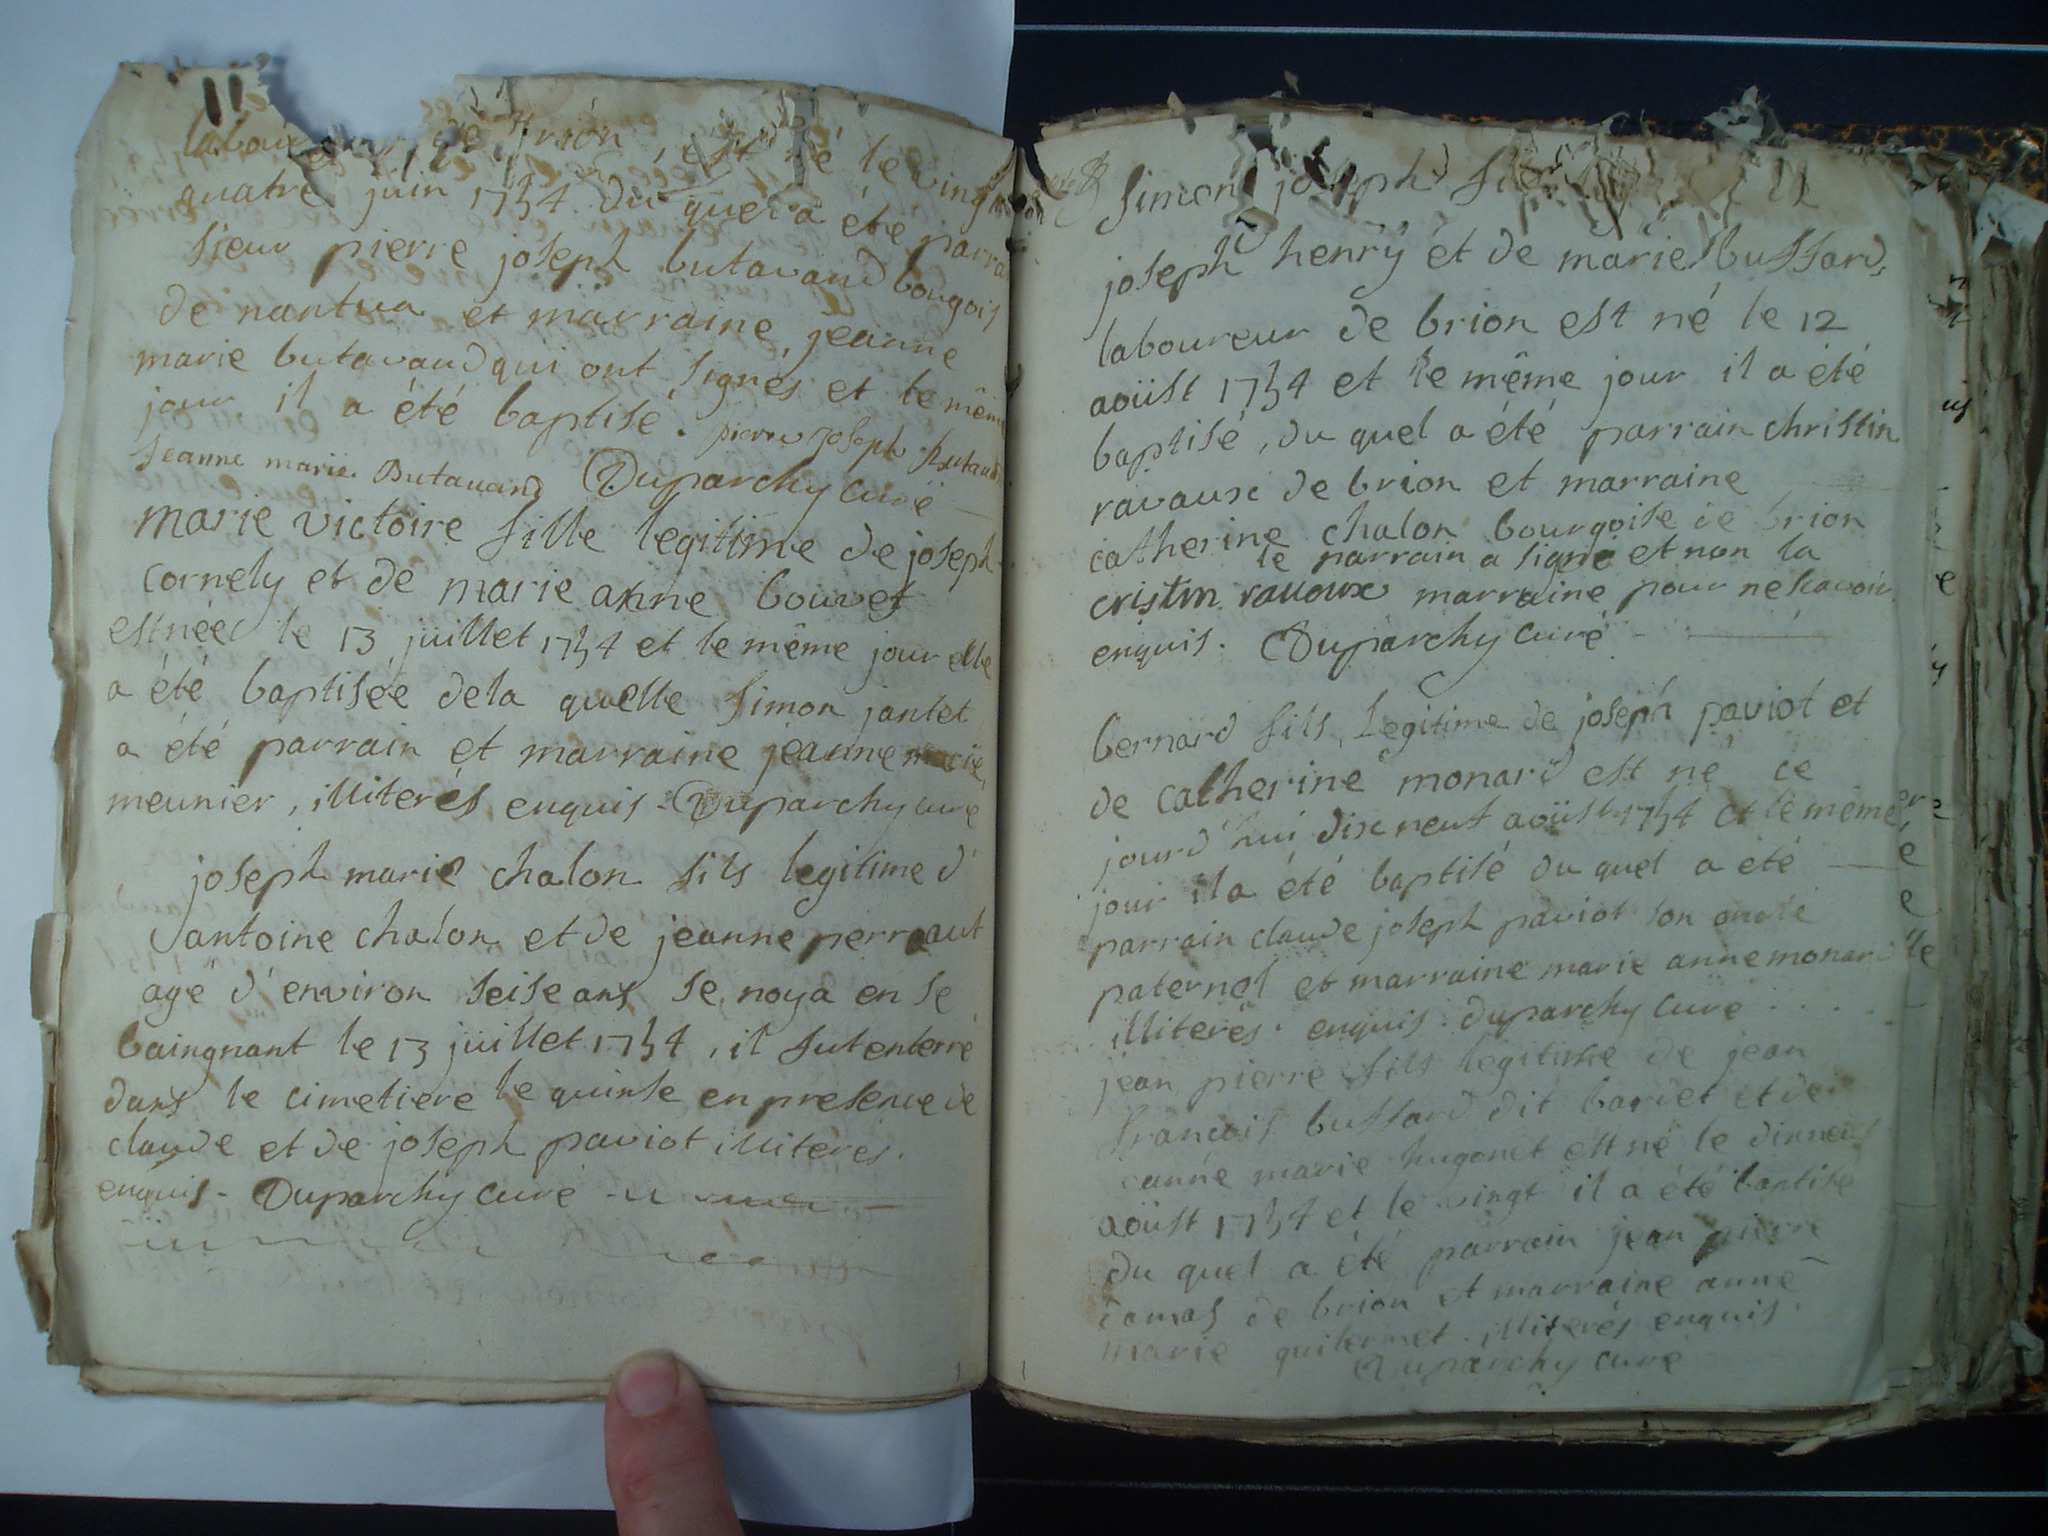 laboureur de Brion, est né le vingt
quatre juin 1754 du quel a été parra
sieur pierre joseph butavand bourgois
de nantua et marraine, jeanne
marie butavaud qui ont signés et le même
jour il a été baptisé. pierre joseph Butavand
Jeanne marie Butavand Duparchy curé
marie victoire fille legitime de joseph
cornely et de marie anne bouvet
est née le 13 juillet 1754 et le même jour elle
a été baptisée de la quelle simon jantet
a été parrain et marraine jeanne marie
meunier, illiterés enquis - Duparchy curé
joseph marie chalon fils legitime d'
antoine chalon et de jeanne perraut
agé d'environ seise ans se noya en se
baingnant le 13 juillet 1754, il fut enterré
dans le cimetiere le quinse en presence de
claude et de joseph paviot illiterés.
enquis - Duparchy curé
simon joseph fils
joseph henry et de marie bussard,
laboureur de brion est né le 12
aoüst 1754 et le même jour il a été
baptisé, du quel a été parrain christin
ravaux de brion et marraine
catherine chalon bourgoise de brion
le parrain a signé et non la
cristin rauoux marraine pour ne scavoir
enquis. Duparchy curé
bernard fils legitime de joseph paviot et
de catherine monard est né ce
jourd'hui dix neuf aoüst 1754 et le même
jour il a été baptisé du quel a été
parrain claude joseph paviot son oncle
paternel et marraine marie anne monard
illiterés. enquis. duparchy curé
jean pierre fils legitime de jean
françois bussard dit bardet et de
anne marie hugonet est né le dixneuf
aoüst 1754 et le vingt il a été baptisé
du quel a été parrain jean pierre
damas de brion et marraine anne
marie guillermet. illiterés enquis.
Duparchy curé